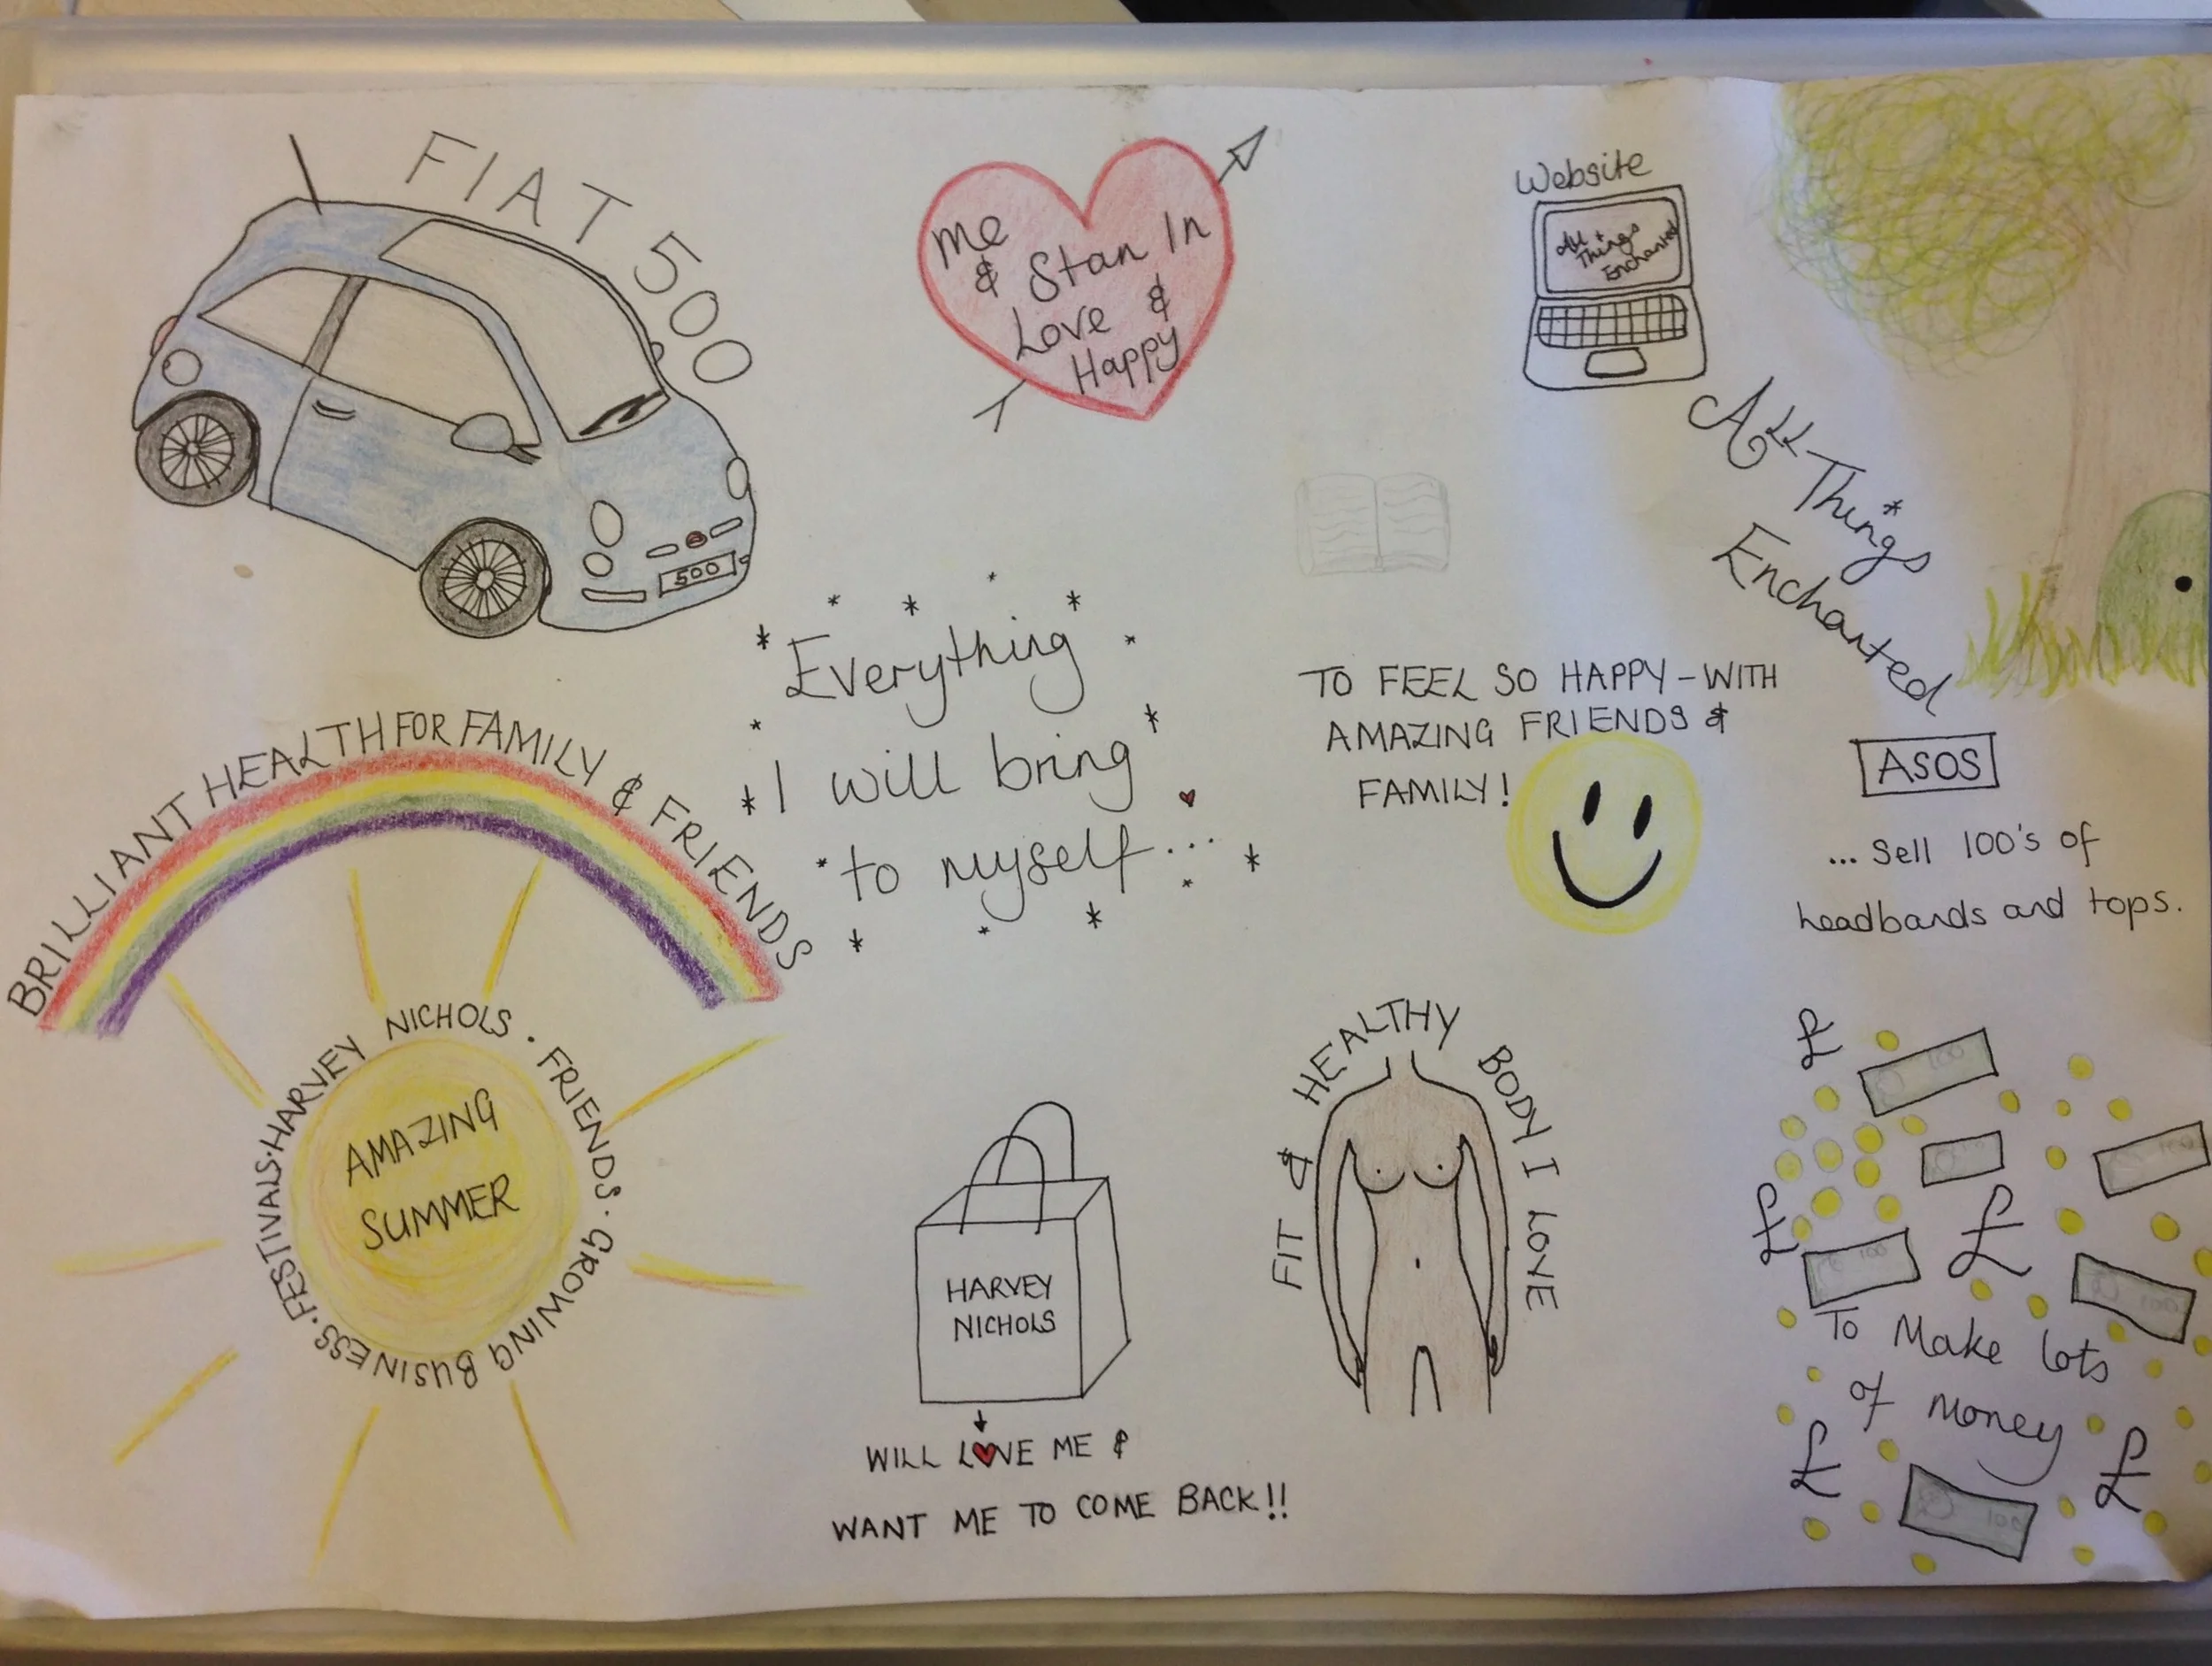 FIAT 500
500
Me
& Stan In
Love &
Happy
Website
All
Things
Enchanted
All Things
Enchanted
Everything
I will bring
to myself...
TO FEEL SO HAPPY - WITH
AMAZING FRIENDS &
FAMILY!
ASOS
... Sell 100's of
headbands and tops.
BRILLIANT HEALTH FOR FAMILY & FRIENDS
HARVEY NICHOLS · FRIENDS · GROWING BUSINESS · FESTIVALS ·
AMAZING
SUMMER
HARVEY
NICHOLS
WILL L♥VE ME &
WANT ME TO COME BACK!!
FIT & HEALTHY BODY I LOVE
£
100
100
£
100
£
100
To Make lots
of money
£
£
100